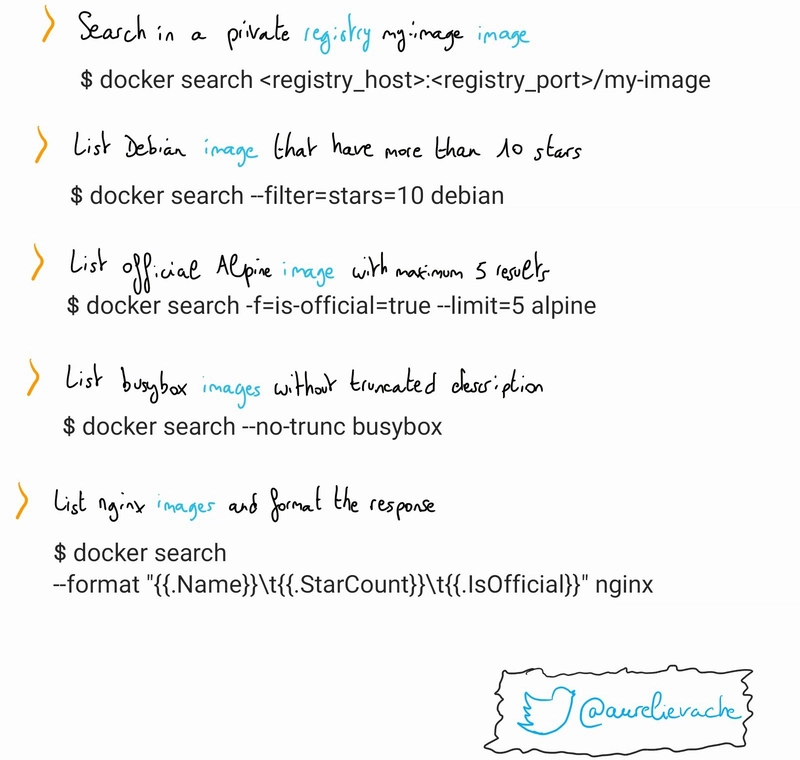 Search in a private registry my-image image
$ docker search <registry_host>:<registry_port>/my-image
List Debian image that have more than 10 stars
$ docker search --filter=stars=10 debian
List official Alpine image with maximum 5 results
$ docker search -f=is-official=true --limit=5 alpine
List busybox images without truncated description
$ docker search --no-trunc busybox
List nginx images and format the response
$ docker search
--format "{{.Name}}\t{{.StarCount}}\t{{.IsOfficial}}" nginx
@aurelievache